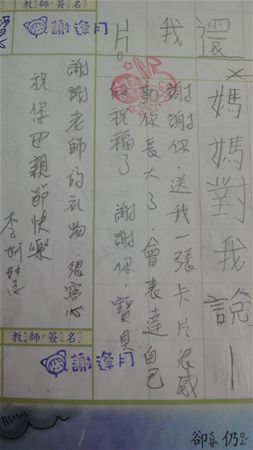 還媽媽對我說
我
謝謝你送我一張卡片很感
動你長大了，會表達自己
片。
祝福了 謝謝你，寶貝
教師簽名
謝逢月
謝謝老師的禮物，很窩心
祝你母親節快樂
教師簽名
謝逢月
卻 仍